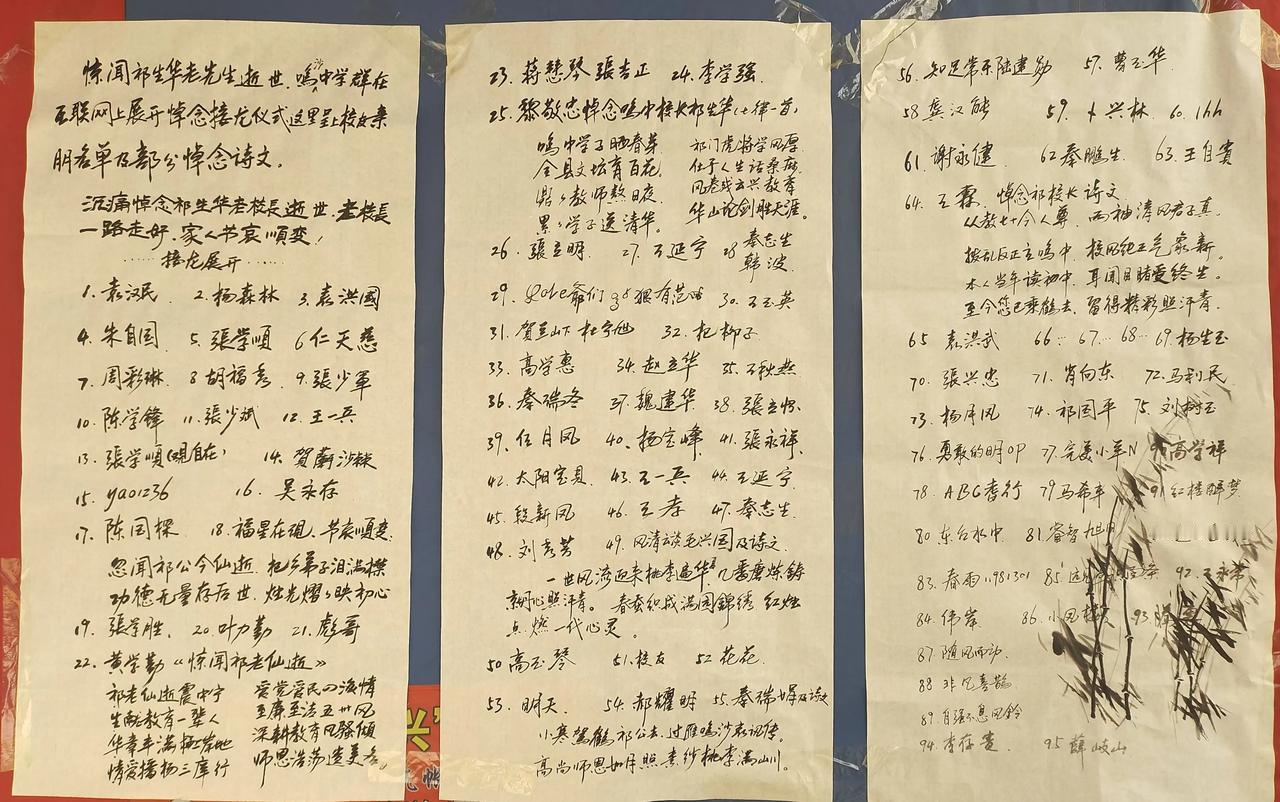 惊闻祁生华老先生逝世，鸣沙中学群在
互联网上展开悼念接龙仪式这里呈上校友亲
朋名单及部分悼念诗文。
沉痛悼念祁生华老校長逝世，老校長
一路走好，家人节哀順变！
……接龙展开……
1. 袁汉民 2. 杨森林 3. 袁洪國
4. 朱自国 5. 張学順 6 仁天慈
7. 周彩琳 8 胡福秀 9. 張少军
10. 陈学锋 11. 張少斌 12. 王一兵
13. 張学順(观自在) 14. 賀蘭沙棘
15. yao1236 16. 吴永存
17. 陈国樑 18. 福星在观，节哀順变
忽闻祁公今仙逝，杞乡弟子泪满襟
功德无量存后世，烛光熠々映初心
19. 張学胜， 20. 叶力勤 21. 彪哥
22. 黄学勤《惊闻祁老仙逝》
祁老仙逝震中宁 爱党爱民四海情
生献教育一辈人 至廉至洁五世风
华章丰满 深耕教育风骚倾
情爱播杨三库行 师恩浩荡造美名
23. 蒋慧琴 張吉正 24. 李学强
25. 黎敬忠悼念鸣中校长祁生华(七律一首)
鸣中学子晒春芽 祁门虎将学风厚
全县文坛育百花 仕于人生话桑麻
鼎々教师熬日夜 风卷残云兴教育
累々学子送清华 华山论剑胜天涯。
26. 張立明 27. 王延宁 28 秦志生
韩波
29. 爺们 g8 狠有范 30. 王玉英
31. 賀兰山下杜宇旭 32. 杞柳子
33. 高学惠 34. 赵立华 35. 王秋燕
36. 秦瑞冬 37. 魏建华 38. 張立怀
39. 任月凤 40. 杨宏峰 41. 張永祥
42. 太阳宝贝 43. 王一兵 44. 王延宁
45. 段新风 46. 王孝 47. 秦志生
48. 刘秀芳 49. 风清云淡毛兴国及诗文
一世风流迎来桃李遍华夏 几番磨炼铸
就丹心照汗青。春蚕织成满园錦绣 红烛
点燃一代心灵。
50 高玉琴 51. 校友 52 花花
53. 明天 54. 郝耀明 55. 秦瑞娟及诗文
小寒駕鶴祁公去，过雁鸣沙哀讯传。
高尚师思如月照 素纱桃李满山川。
56. 知足常乐陆建勋 57. 曹玉华
58 龚汉能 59. 十兴林 60. lhh
61. 谢永健 62 秦鹏生 63. 王自宾
64. 王霖，悼念祁校长诗文
从教七十令人尊，两袖清风君子真。
拨乱反正主鸣中，校风纯正气象新
本人当年读初中，耳闻目睹受终生。
至今您已乘鶴去，留得精彩照汗青。
65 袁洪武 66… 67… 68… 69. 杨生玉
70. 張興忠 71. 肖向东 72. 马利民
73 杨月风 74. 祁国平 75. 刘树玉
76. 勇敢的明OP 77. 完美小军N 高学祥
78. ABG春行 79 马希丰 91 红楼醉梦
80 东台水中 81. 睿智旭日
83. 春雨11981301 85 92.
84. 伟岸 86. 93.
87. 随风而动
88 非凡喜鵲
89. 自强不息风铃
94. 李存贵 95 薛岐山